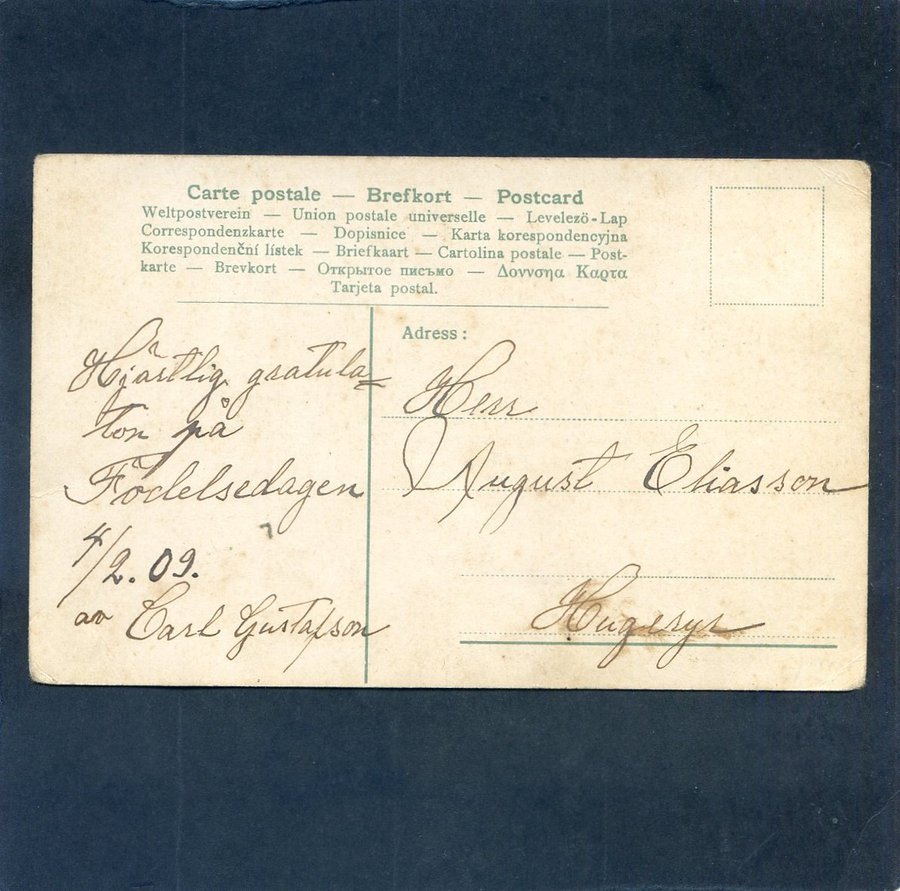 Carte postale — Brefkort — Postcard
Weltpostverein — Union postale universelle — Levelező-Lap
Correspondenzkarte — Dopisnice — Karta korespondencyjna
Korespondenční lístek — Briefkaart — Cartolina postale — Post-
karte — Brevkort — Открытое письмо — Δουνσηα Καρτα
Tarjeta postal.
Hjärtlig gratula=
ton på
Födelsedagen
4/2. 09.
av Carl Gustafson
Adress:
Herr
August Eliasson